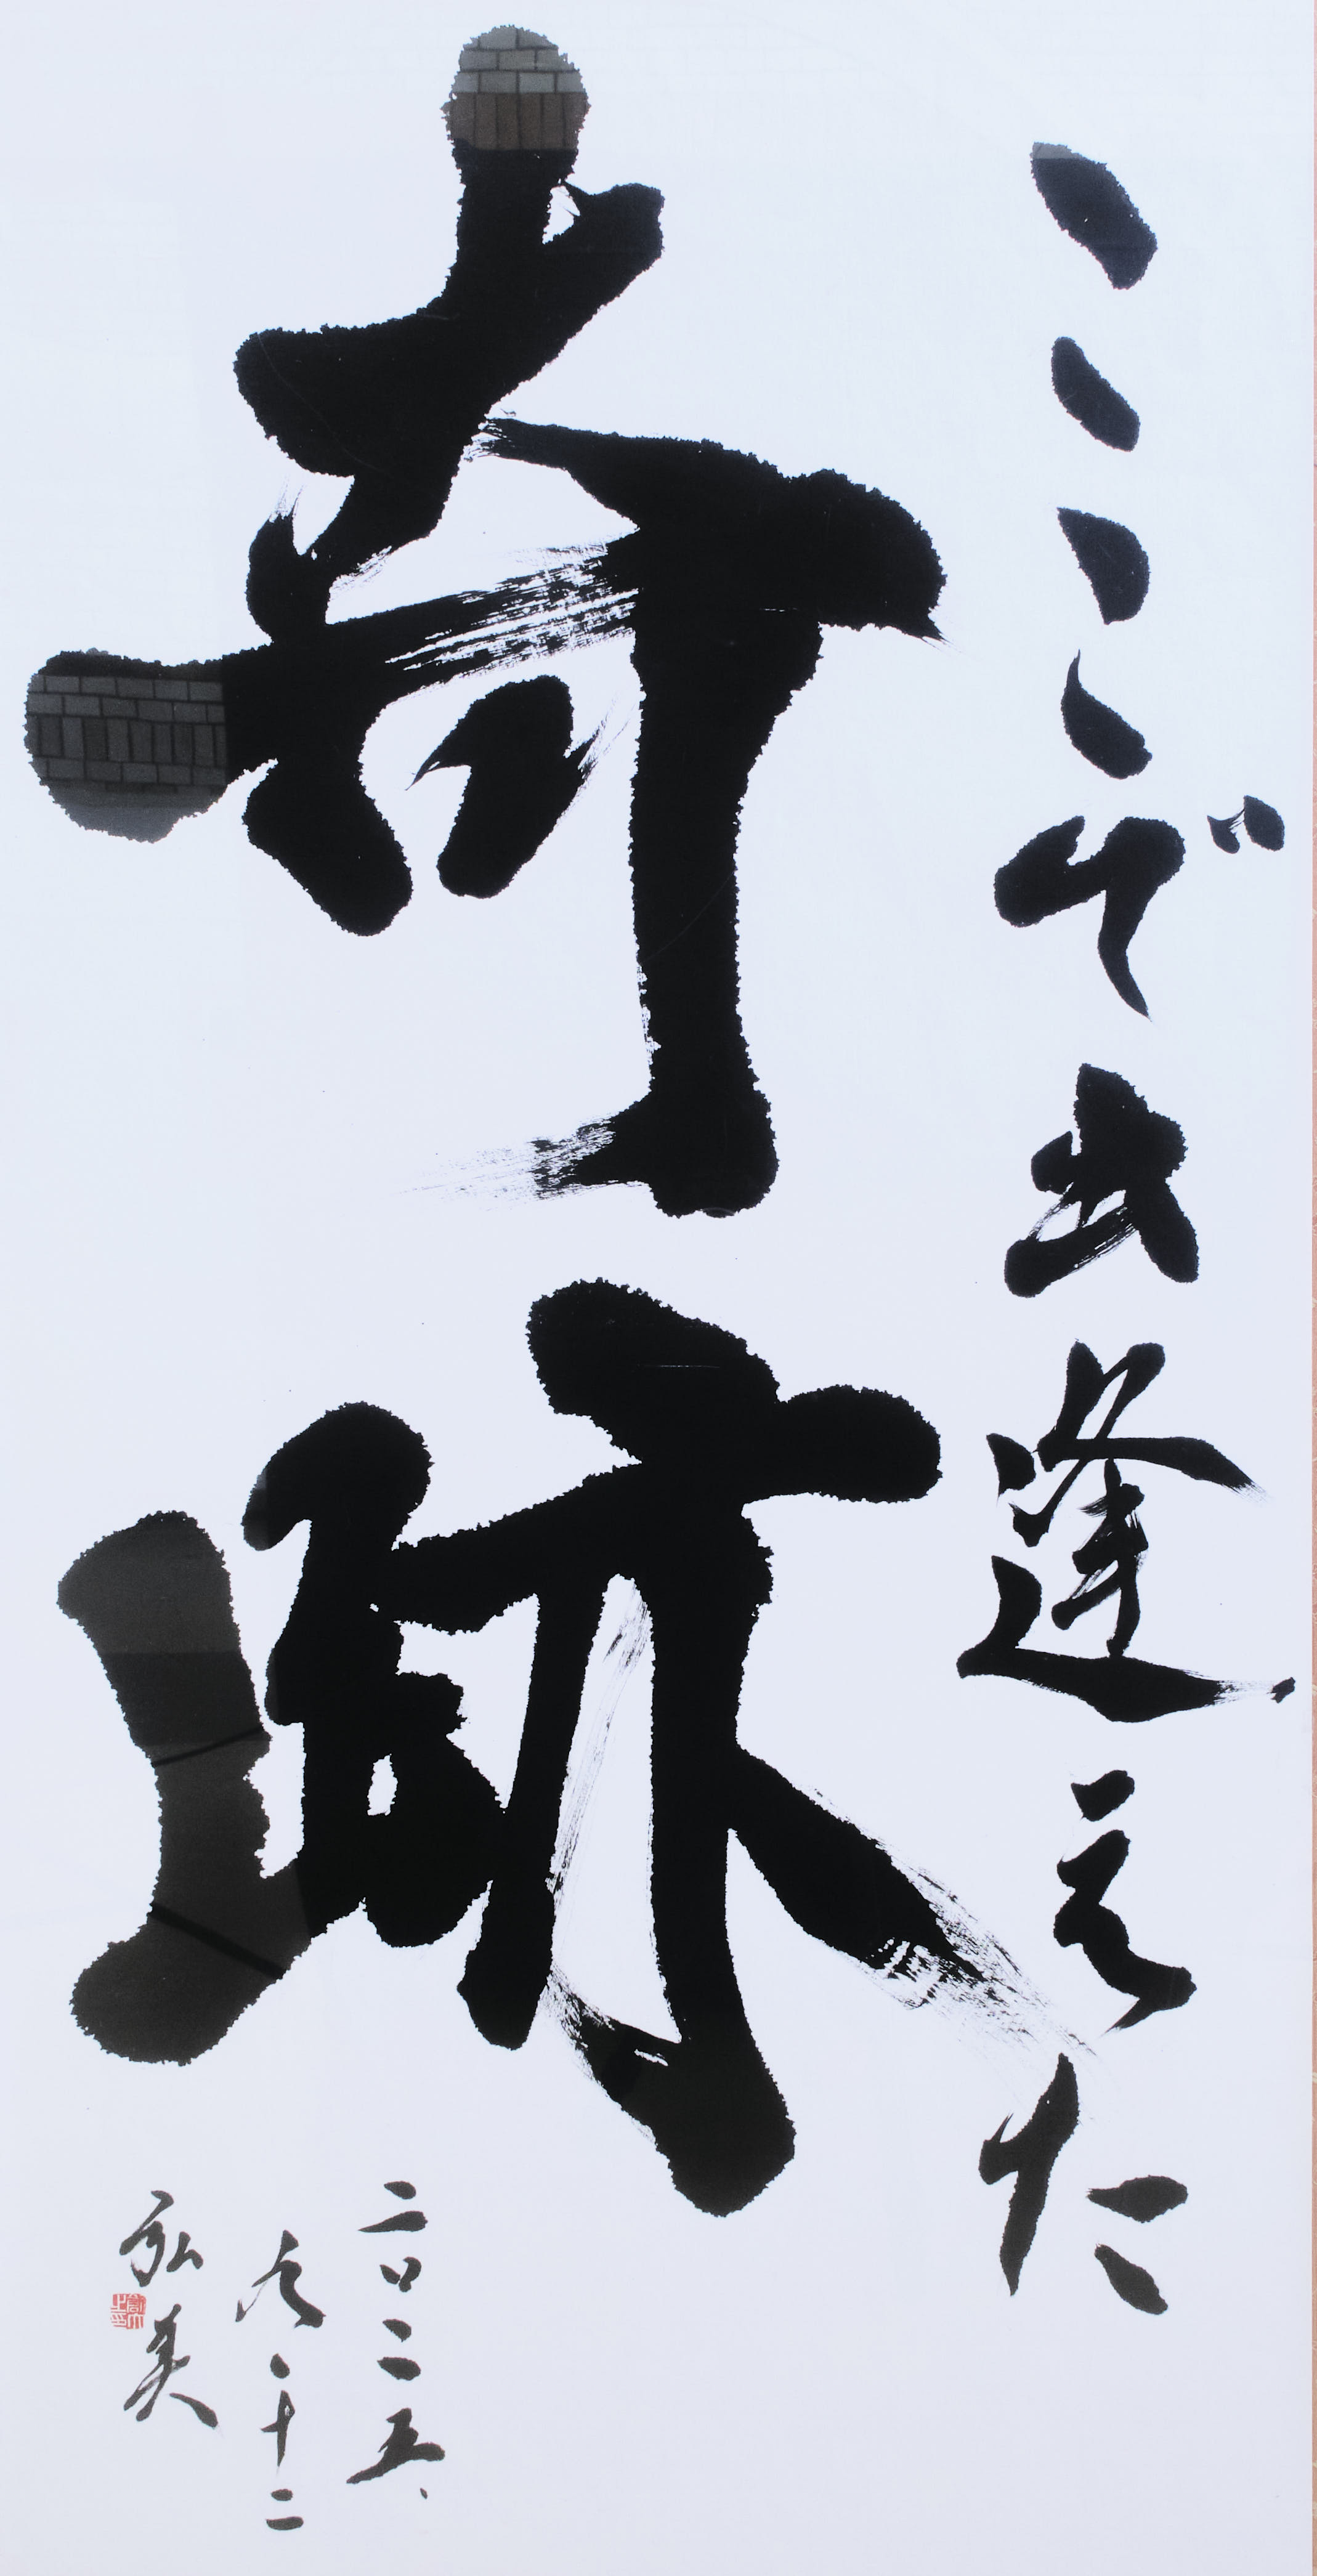 ここで出逢えた
奇跡
二〇二五、
九、十二
弘美